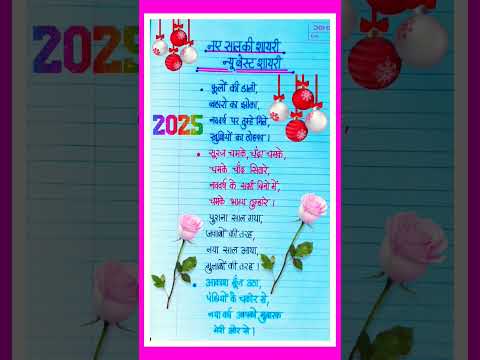 2025
नए साल की शायरी
न्यू बेस्ट शायरी
फूलों की डाली,
बहारो का झोका,
नववर्ष पर तुम्हे मिले,
खुशियों का तोहफा।
2025
सूरज चमके, चंद्रा चमके,
चमके चाँद सितारे,
नववर्ष के सभी दिनो में,
चमके भाग्य तुम्हारे।
पुराना साल गया,
जवाबों की तरह,
नया साल आया,
गुलाबों की तरह।
आकाश गूँज उठा,
पंछियों के चहकोर से,
नया वर्ष आपको मुबारक
मेरी ओर से।